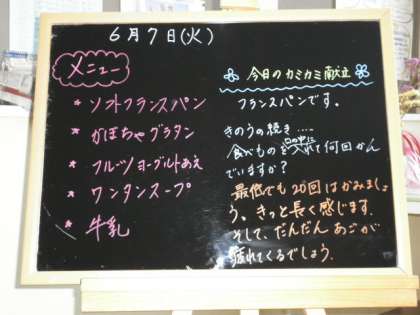 6月7日(火)
メニュー
* ソフトフランスパン
* かぼちゃグラタン
* フルーツヨーグルトあえ
* ワンタンスープ
* 牛乳
今日のカミカミ献立
フランスパンです。
きのうの続き‥‥
食べものを口の中に入れて何回かん
でいますか?
最低でも20回はかみましょ
う。きっと長く感じます。
そして、だんだん あごが
疲れてくるでしょう。